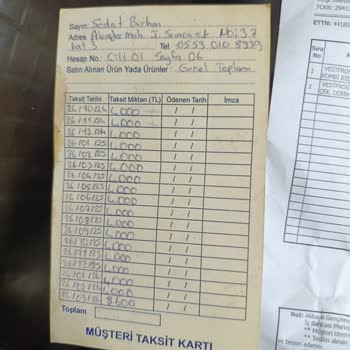 Sayın Sedat Burhan
Adres
kat 3 Tel :0553 010 8339
Hesap No: Cilt 01 Sayfa 06
Satın Alınan Ürün Yada Ürünler : Genel Toplam
Taksit Tarihi Taksit Miktarı (TL) Ödenen Tarih İmza
26/10/24 4.000 / /
26/11/24 4.000 / /
26/12/24 4.000 / /
26/01/25 4.000 / /
26/02/25 4.000 / /
26/03/25 4.000 / /
26/04/25 4.000 / /
26/05/25 4.000 / /
26/06/25 4.000 / /
26/07/25 4.000 / /
26/08/25 4.000 / /
26/09/25 4.000 / /
26/10/25 4.000 / /
26/11/25 4.000 / /
26/12/25 4.000 / /
4.000 / /
4.000 / /
8.600 / /
Toplam
MÜŞTERİ TAKSİT KARTI
TCKN: 2941
ETTN: 44180
Sıra
No
1 VESTFROS
KOMBİ BUZ
2 VESTFROS
ÇEK. DERİN
Not:
İş Bankası Merin
** Müşteri istem
** Teslim alınan
ve beyan ederler.